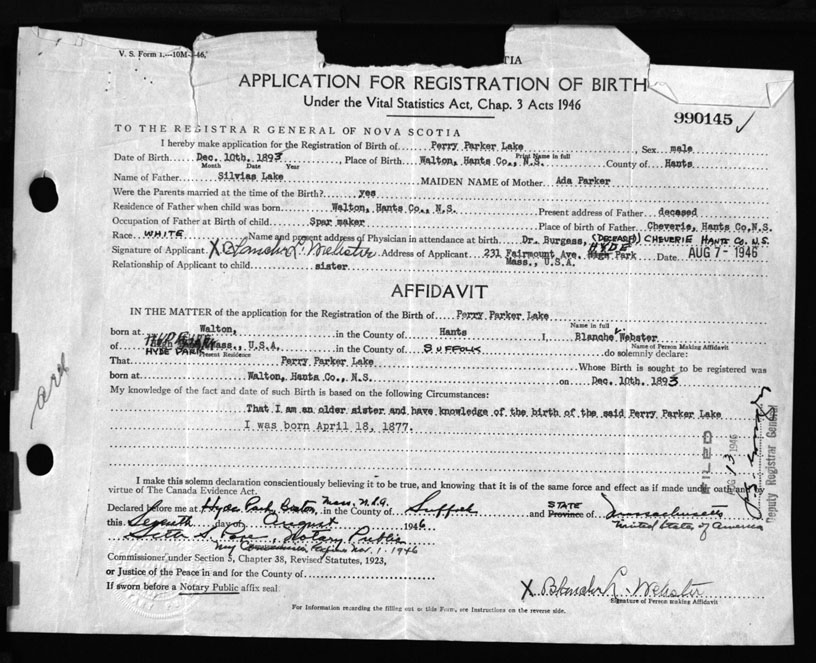 V. S. Form 1.—10M-
TIA
APPLICATION FOR REGISTRATION OF BIRTH
Under the Vital Statistics Act, Chap. 3 Acts 1946
990145 ✓
TO THE REGISTRAR GENERAL OF NOVA SCOTIA
I hereby make application for the Registration of Birth of Perry Parker Lake Sex male
Print Name in full
Date of Birth Dec. 10th. 1893, Place of Birth Walton, Hants Co., N.S. County of Hants
Month Date Year
Name of Father Silvias Lake MAIDEN NAME of Mother Ada Parker
Were the Parents married at the time of the Birth? yes
Residence of Father when child was born Walton, Hants Co., N.S. Present address of Father decased
Occupation of Father at Birth of child Spar maker Place of birth of Father Cheverie, Hants Co,N.S.
Race WHITE Name and present address of Physician in attendance at birth Dr. Burgess, (DECEASED) CHEVERIE HANTS CO. N.S.
HYDE
Signature of Applicant X Blanche L. Webster Address of Applicant 231 Fairmount Ave. Park Date AUG 7 - 1946
Mass., U.S.A.
Relationship of Applicant to child sister
AFFIDAVIT
IN THE MATTER of the application for the Registration of the Birth of Perry Parker Lake
Name in full
born at Walton, in the County of Hants I, Blanche L. Webster
Name of Person Making Affidavit
of HYDE PARK Mass., U.S.A. in the County of SUFFOLK do solemnly declare:
Present Residence
That Perry Parker Lake Whose Birth is sought to be registered was
born at Walton, Hants Co., N.S. on Dec. 10th. 1893
My knowledge of the fact and date of such Birth is based on the following Circumstances:
That I am an older sister and have knowledge of the birth of the said Perry Parker Lake
I was born April 18, 1877.
I make this solemn declaration conscientiously believing it to be true, and knowing that it is of the same force and effect as if made under oath and by
virtue of The Canada Evidence Act.
Declared before me at Hyde Park, Boston, Mass. U.S.A. in the County of Suffolk and STATE Province of Massachusetts
this Seventh day of August 1946 United States of America
Notary Public
My Commission Expires Nov. 1. 1946
Commissioner under Section 5, Chapter 38, Revised Statutes, 1923,
or Justice of the Peace in and for the County of
If sworn before a Notary Public affix seal.
X Blanche L. Webster
Signature of Person making Affidavit
For Information regarding the filling out of this Form, see Instructions on the reverse side.
FILED
AUG 13 1946
Deputy Registrar General